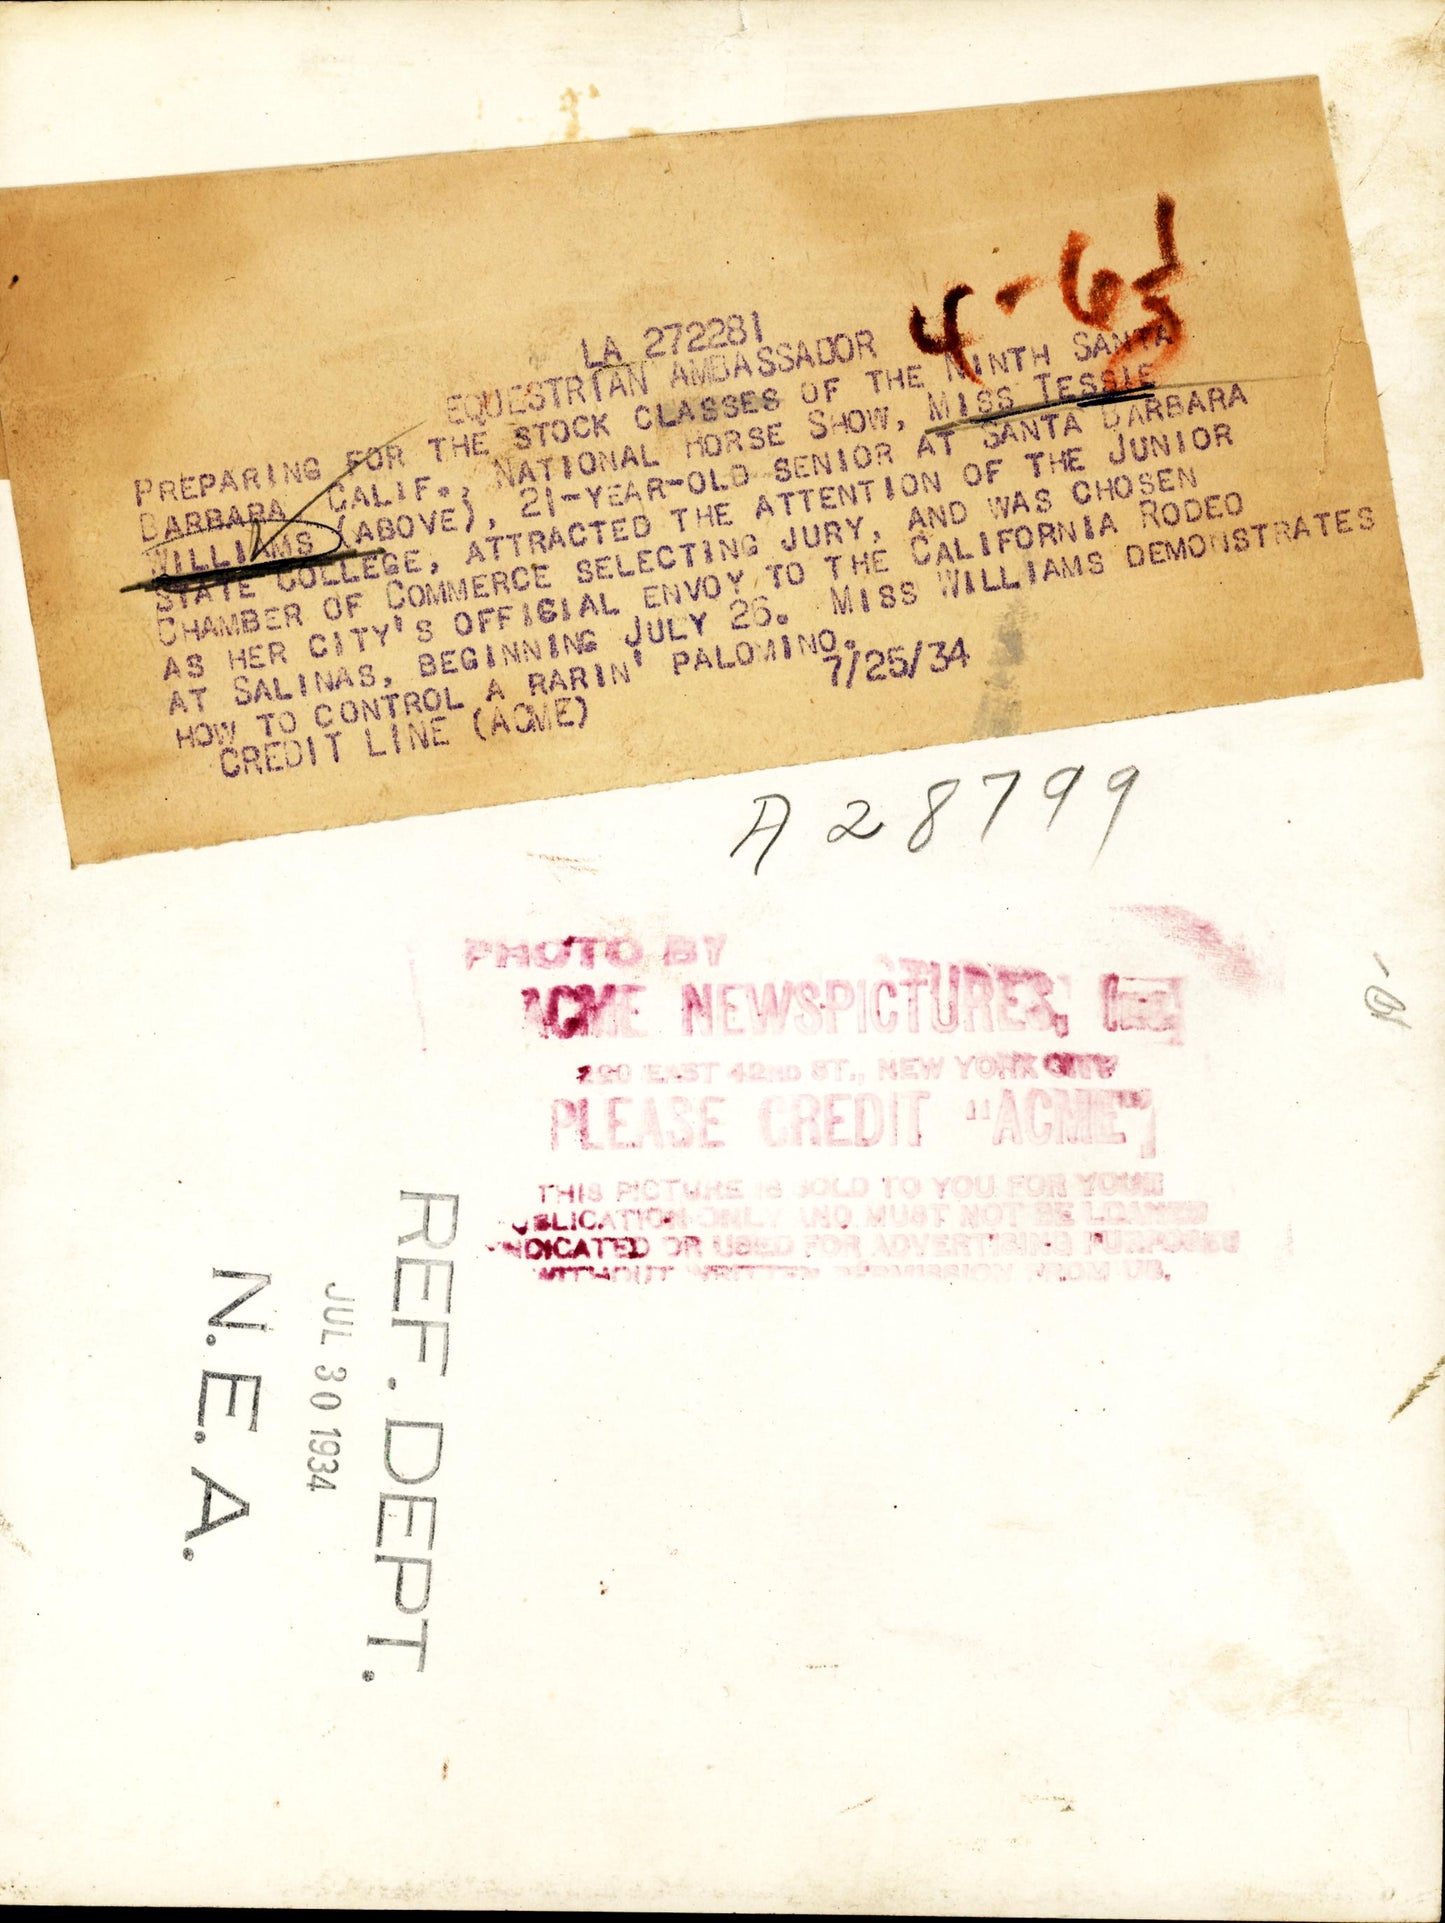 LA 272281
EQUESTRIAN AMBASSADOR
PREPARING FOR THE STOCK CLASSES OF THE NINTH SANTA
BARBARA, CALIF., NATIONAL HORSE SHOW, MISS TESSIE
WILLIAMS (ABOVE), 21-YEAR-OLD SENIOR AT SANTA BARBARA
STATE COLLEGE, ATTRACTED THE ATTENTION OF THE JUNIOR
CHAMBER OF COMMERCE SELECTING JURY, AND WAS CHOSEN
AS HER CITY'S OFFICIAL ENVOY TO THE CALIFORNIA RODEO
AT SALINAS, BEGINNING JULY 26. MISS WILLIAMS DEMONSTRATES
HOW TO CONTROL A RARIN' PALOMINO.
CREDIT LINE (ACME) 7/25/34
4-6
A28799
PHOTO BY
ACME NEWSPICTURES, INC.
220 EAST 42ND ST., NEW YORK CITY
PLEASE CREDIT "ACME"
THIS PICTURE IS SOLD TO YOU FOR YOUR
PUBLICATION ONLY AND MUST NOT BE LOANED
SYNDICATED OR USED FOR ADVERTISING PURPOSES
WITHOUT WRITTEN PERMISSION FROM US.
REF. DEPT.
JUL 30 1934
N.E.A.